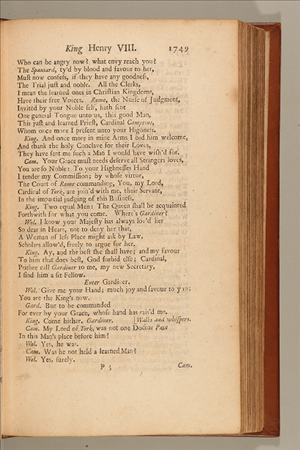 King Henry VIII. 1749
Who can be angry now? what envy reach you?
The Spaniard, ty'd by blood and favour to her,
Must now confess, if they have any goodness,
The Trial just and noble. All the Clerks,
I mean the learned ones in Christian Kingdoms,
Have their free Voices. Rome, the Nurse of Judgment,
Invited by your Noble self, hath sent
One general Tongue unto us, this good Man,
This just and learned Priest, Cardinal Campeius,
Whom once more I present unto your Highness.
King. And once more in mine Arms I bid him welcome,
And thank the holy Conclave for their Loves,
They have sent me such a Man I would have wish'd for.
Cam. Your Grace must needs deserve all Strangers loves,
You are so Noble: To your Highnesses Hand
I tender my Commission; by whose virtue,
The Court of Rome commanding, You, my Lord,
Cardinal of York, are join'd with me, their Servant,
In the impartial judging of this Business.
King. Two equal Men: The Queen shall be acquainted
Forthwith for what you come. Where's Gardiner?
Wol. I know your Majesty has always lov'd her
So dear in Heart, not to deny her that,
A Woman of less Place might ask by Law,
Scholars allow'd, freely to argue for her.
King. Ay, and the best she shall have; and my favour
To him that does best, God forbid else: Cardinal,
Prithee call Gardiner to me, my new Secretary,
I find him a fit Fellow.
Enter Gardiner.
Wol. Give me your Hand; much joy and favour to you;
You are the King's now.
Gard. But to be commanded
For ever by your Grace, whose hand has rais'd me.
King. Come hither, Gardiner. [Walks and whispers.
Cam. My Lord of York, was not one Doctor Pace
In this Man's place before him?
Wol. Yes, he was.
Cam. Was he not held a learned Man?
Wol. Yes, surely.
P 3 Cam.